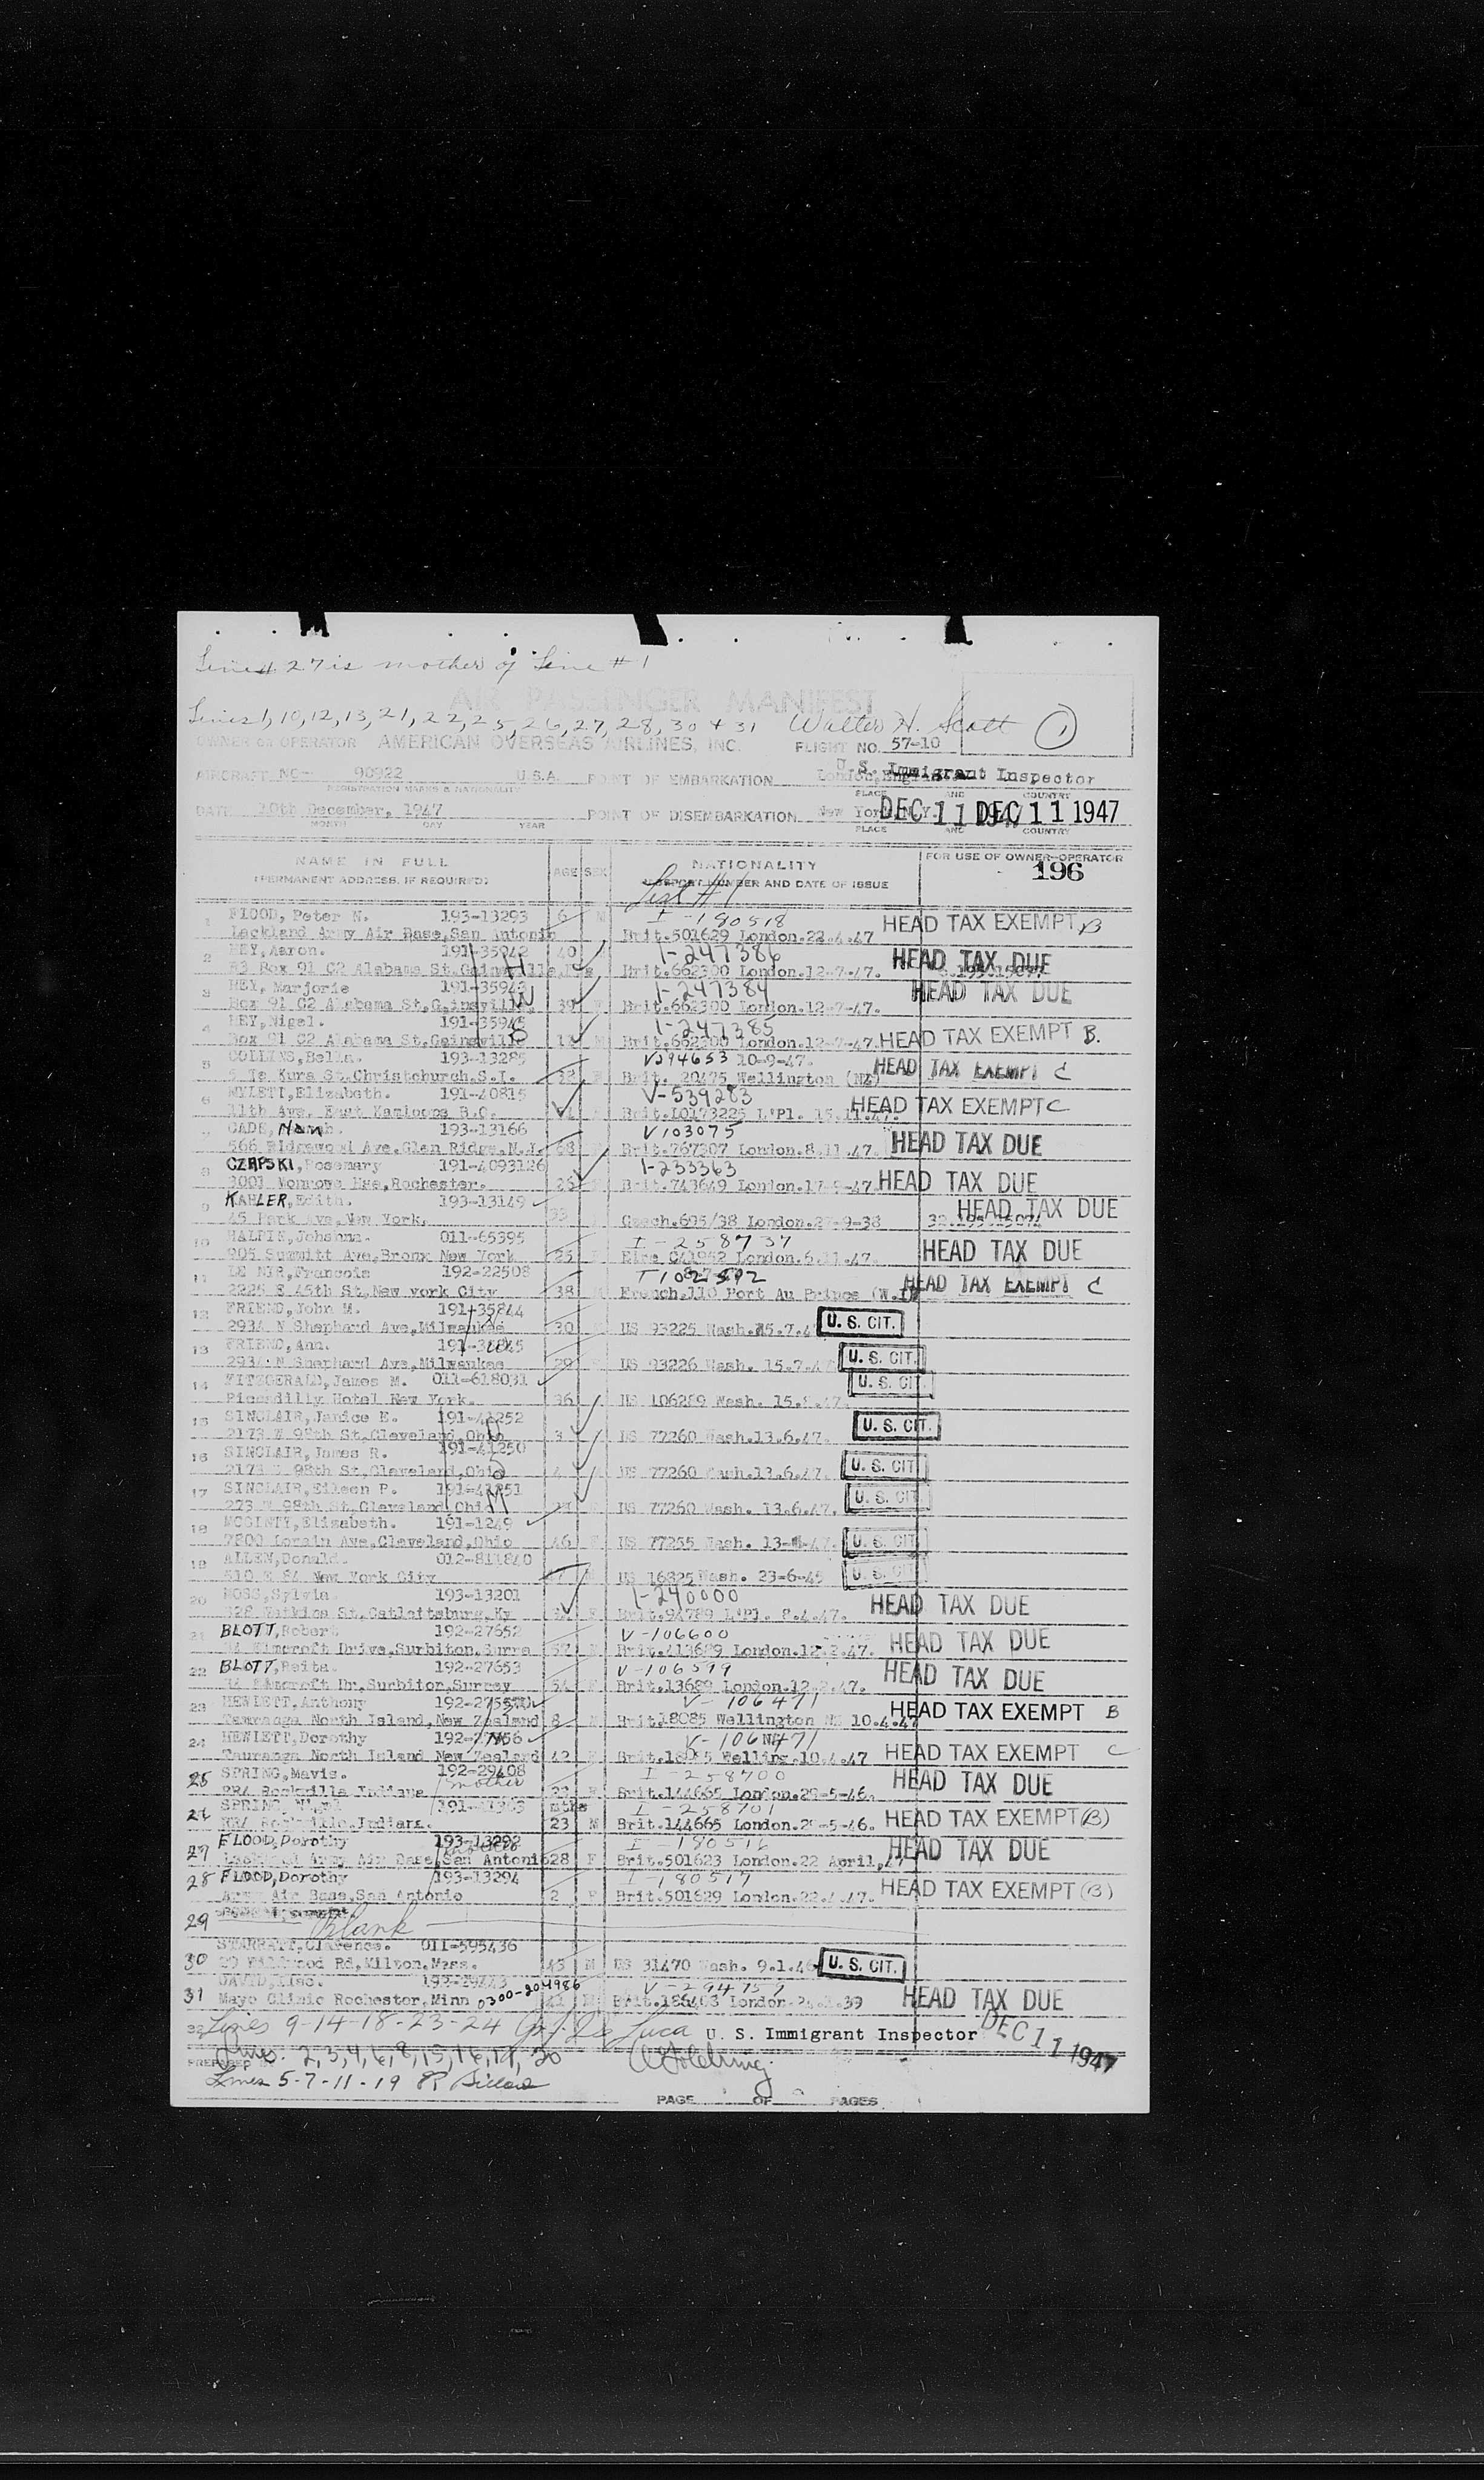 Line # 27 is mother of Line # 1
AIR PASSENGER MANIFEST
Lines 1, 10, 12, 13, 21, 22, 25, 26, 27, 28, 30 + 31 Walter H. Scott 1
OWNER OR OPERATOR AMERICAN OVERSEAS AIRLINES, INC. FLIGHT NO. 57-10
U.S. Immigrant Inspector
AIRCRAFT NO 90922 U.S.A. POINT OF EMBARKATION London, England
REGISTRATION MARKS & NATIONALITY PLACE AND COUNTRY
DATE 10th December, 1947 POINT OF DISEMBARKATION New York, N.Y. DEC 11 1947 DEC 11 1947
MONTH DAY YEAR PLACE AND COUNTRY
NAME IN FULL AGE SEX NATIONALITY FOR USE OF OWNER-OPERATOR
(PERMANENT ADDRESS, IF REQUIRED) PASSPORT NUMBER AND DATE OF ISSUE 196
List # 1
1 FLOOD, Peter N. 193-13293 6 M I-180518 HEAD TAX EXEMPT B
Lackland Army Air Base, San Antonio Brit.501629 London.22.4.47
2 HEY, Aaron. 191-35942 40 1-247386 HEAD TAX DUE
R3 Box 91 C2 Alabama St. Brit.662300 London.12-7-47.
3 HEY, Marjorie 191-35943 1-247384 HEAD TAX DUE
Box 91 C2 Alabama St, 39 Brit.662300 London.12-7-47.
4 HEY, Nigel. 191-35945 1-247385 HEAD TAX EXEMPT B.
Box 91 C2 Alabama St, Gainsville Brit.662300 London.12-7-47.
5 COLLINS, Bella. 193-13285 V294653 10-9-47. HEAD TAX EXEMPT C
5 Te Kura St, Christchurch, S.I. Brit. 20475 Wellington (NZ)
6 MYLETT, Elizabeth. 191-40815 V-539283 HEAD TAX EXEMPT C
11th Ave. East Kamloops B.C. Brit.LO173225 L'Pl. 15.11.47.
7 CADE, 193-13166 V103075 HEAD TAX DUE
566 Ridgewood Ave, Glen Ridge, N.J. 68 Brit.767307 London.8.11.47.
8 CZAPSKI, Rosemary 191-4093126 1-233363 HEAD TAX DUE
3001 Monrowe Hse, Rochester. 26 Brit.743649 London.17-9-47.
9 KAHLER, Edith. 193-13149 HEAD TAX DUE
45 Park Ave, New York. 33 Czech.695/38 London.27-9-38
10 HALPIN, Johanna. 011-65395 I-258737 HEAD TAX DUE
905 Summitt Ave, Bronx New York 25 Eire London.6.11.47.
11 LE NIR, Francois 192-22508 HEAD TAX EXEMPT C
2225 E 45th St, New york City 38 French.110 Port Au Prince (W.I)
12 FRIEND, John M. 191-35844
2934 N Shephard Ave, Milwaukee 30 US 93225 Wash. 15.7.4 U. S. CIT.
13 FRIEND, Ann.
2934 N Shephard Ave, Milwaukee 29 US 93226 Wash. 15.7.47 U. S. CIT.
14 FITZGERALD, James M. 011-618031 U. S. CIT.
Piccadilly Hotel New York. 36 US 106289 Wash. 15.8.47.
15 SINCLAIR, Janice E. 191-41252
2173 W 98th St, Cleveland, Ohio 3 US 77260 Wash.13.6.47. U. S. CIT.
16 SINCLAIR, James R. 191-41250
2173 W 98th St, Cleveland, Ohio 4 US 77260 Wash.13.6.47. U. S. CIT.
17 SINCLAIR, Eileen P. 191-41251
273 W 98th St, Cleveland Ohio US 77260 Wash. 13.6.47. U. S. CIT.
18 MCGINTY, Elizabeth. 191-1249
7800 Lorain Ave, Cleveland, Ohio 46 US 77255 Wash. 13-6-47. U. S. CIT.
19 ALLEN, Donald. 012-811840
510 E 84 New York City US 16825 Wash. 23-6-45 U. S. CIT.
20 ROSS, Sylvia. 193-13201 1-240000 HEAD TAX DUE
Catlettsburg, Ky Brit.94789 L'Pl. 8.4.47.
21 BLOTT, Robert 192-27652 V-106600 HEAD TAX DUE
Drive, Surbiton, Surre 57 Brit.413689 London.12.2.47.
22 BLOTT, Reita. 192-27653 V-106599 HEAD TAX DUE
Dr, Surbiton, Surrey 54 F Brit.13689 London.12.2.47.
23 HEWLETT, Anthony V-106471 HEAD TAX EXEMPT B
Tauranga North Island, New Zealand 8 Brit.18085 Wellington NZ 10.4.47
24 HEWLETT, Dorothy V-106471 HEAD TAX EXEMPT C
Tauranga North Island New Zealand 42 F Brit.18085 Welling.10.4.47
25 SPRING, Mavis. 192-29408 I-258700 HEAD TAX DUE
mother
RR4 Rockville Indiana Brit.144665 London.29-5-46.
26 SPRING, mths I-258701 HEAD TAX EXEMPT (B)
RR4 Rockville, Indiana. 23 M Brit.144665 London.29-5-46.
27 FLOOD, Dorothy 193-13292 I-180516 HEAD TAX DUE
Lackland Army Air Base, San Antonio 28 F Brit.501623 London.22 April, 47
28 FLOOD, Dorothy 193-13294 I-180517 HEAD TAX EXEMPT (B)
Army Air Base, San Antonio 2 F Brit.501629 London.22.4.47.
29 Blank
STARRATT, Clarence. 011-595436
30 Rd, Milton, Mass. 45 M US 31470 Wash. 9.1.46 U. S. CIT.
DAVID, V-294757
31 Mayo Clinic Rochester, Minn 0300-204986 Brit.186403 London. HEAD TAX DUE
32 Lines 9-14-18-23-24 De Luca U. S. Immigrant Inspector DEC 11 1947
PREPARED Lines. 2,3,4,6,8,15,16,17,20
Lines 5-7-11-19
PAGE OF PAGES